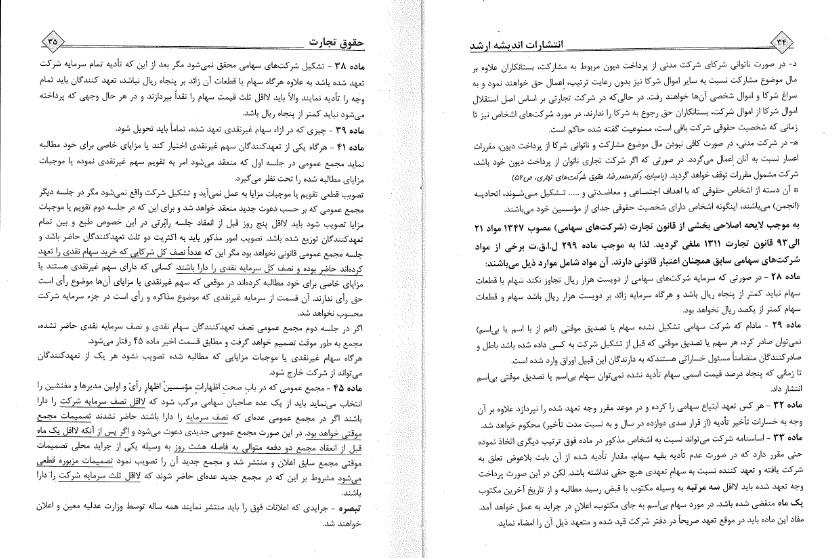 ۳۴ انتشارات اندیشه ارشد
د- در صورت ناتوانی شرکای شرکت مدنی از پرداخت دیون مربوط به مشارکت، بستانکاران علاوه بر
مال موضوع مشارکت نسبت به سایر اموال شرکا نیز بدون رعایت ترتیب، اعمال حق خواهند نمود و به
سراغ شرکا و اموال شخصی آن‌ها خواهند رفت. در حالی‌که در شرکت تجارتی بر اساس اصل استقلال
اموال شرکا از اموال شرکت، بستانکاران حق رجوع به شرکا را ندارند، در مورد شرکت‌های اشخاص نیز تا
زمانی که شخصیت حقوقی شرکت باقی است، ممنوعیت گفته شده حاکم است.
ه- در شرکت مدنی، در صورت کافی نبودن مال موضوع مشارکت و ناتوانی شرکا از پرداخت دیون، مقررات
اعسار نسبت به آنان إعمال می‌گردد. در صورتی که اگر شرکت تجاری ناتوان از پرداخت دیون خود باشد،
شرکت مشمول مقررات توقف خواهد گردید. (پاسبان، دکتر محمدرضا، حقوق شرکت‌های تجاری، ص۵۶)
* آن دسته از اشخاص حقوقی که با اهداف اجتماعی و معاضدتی و ..... تشکیل می‌شوند، اتحادیه
(انجمن) می‌باشند، اینگونه اشخاص دارای شخصیت حقوقی جدای از مؤسسین خود می‌باشند.
به موجب لایحه اصلاحی بخشی از قانون تجارت (شرکت‌های سهامی) مصوب ۱۳۴۷ مواد ۲۱
الی۹۳ قانون تجارت ۱۳۱۱ ملغی گردید. لذا به موجب ماده ۲۹۹ ل.ا.ق.ت برخی از مواد
شرکت‌های سهامی سابق همچنان اعتبار قانونی دارند. آن مواد شامل موارد ذیل می‌باشند:
ماده ۲۸ - در صورتی که سرمایه شرکت‌های سهامی از دویست هزار ریال تجاوز نکند سهام یا قطعات
سهام نباید کمتر از پنجاه ریال باشد و هرگاه سرمایه زائد بر دویست هزار ریال باشد سهام و قطعات
سهام کمتر از یکصد ریال نخواهد بود.
ماده ۲۹ - مادام که شرکت سهامی تشکیل نشده سهام یا تصدیق موقتی (اعم از با اسم یا بی‌اسم)
نمی‌توان صادر کرده، هر سهم یا تصدیق موقتی که قبل از تشکیل شرکت به کسی داده شده باشد باطل و
صادرکنندگان متضامناً مسئول خساراتی هستند که به دارندگان این قبیل اوراق وارد شده است.
تا زمانی که پنجاه درصد قیمت اسمی سهام تأدیه نشده نمی‌توان سهام بی‌اسم یا تصدیق موقتی بی‌اسم
انتشار داد.
ماده ۳۲ - هر کس تعهد ابتیاع سهامی را کرده و در موعد مقرر وجه تعهد شده را نپردازد علاوه بر آن
وجه به خسارات تأخیر تأدیه (از قرار صدی دوازده در سال و به نسبت مدت تأخیر) محکوم خواهد شد.
ماده ۳۳ - اساسنامه شرکت می‌تواند نسبت به اشخاص مذکور در ماده فوق ترتیب دیگری اتخاذ نموده
حتی مقرر دارد که در صورت عدم تأدیه بقیه سهام، مقدار تأدیه شده از آن بابت بلاعوض تعلق به
شرکت یافته و تعهد کننده نسبت به سهام تعهدی هیچ حقی نداشته باشد. لکن در این صورت پرداخت
وجه تعهد شده باید لااقل سه مرتبه به وسیله مکتوب با قبض رسید مطالبه و از تاریخ آخرین مکتوب
یک ماه منقضی شده باشد. در مورد سهام بی‌اسم به جای مکتوب، اعلان در جراید به عمل خواهد آمد.
مفاد این ماده باید در موقع تعهد صریحاً در دفتر شرکت قید شده و متعهد ذیل آن را امضاء نماید.
حقوق تجارت ۳۵
ماده ۳۸ - تشکیل شرکت‌های سهامی محقق نمی‌شود مگر بعد از این که تأدیه تمام سرمایه شرکت
تعهد شده باشد به علاوه هرگاه سهام یا قطعات آن زائد بر پنجاه ریال نباشد، تعهد کنندگان باید تمام
وجه را تأدیه نمایند والاّ باید لااقل ثلث قیمت سهام را نقداً بپردازند و در هر حال وجهی که پرداخته
می‌شود نباید کمتر از پنجاه ریال باشد.
ماده ۳۹ - چیزی که در ازاء سهام غیرنقدی تعهد شده، تماماً باید تحویل شود.
ماده ۴۱ - هرگاه یکی از تعهدکنندگان سهم غیرنقدی اختیار کند یا مزایای خاصی برای خود مطالبه
نماید مجمع عمومی در جلسه اول که منعقد می‌شود امر به تقویم سهم غیرنقدی نموده یا موجبات
مزایای مطالبه شده را تحت نظر می‌گیرد.
تصویب قطعی تقویم یا موجبات مزایا به عمل نمی‌آید و تشکیل شرکت واقع نمی‌شود مگر در جلسه دیگر
مجمع عمومی که بر حسب دعوت جدید منعقد خواهد شد و برای این که در جلسه دوم تقویم یا موجبات
مزایا تصویب شود باید لااقل پنج روز قبل از انعقاد جلسه راپرتی در این خصوص طبع و بین تمام
تعهدکنندگان توزیع شده باشد. تصویب امور مذکور باید به اکثریت دو ثلث تعهدکنندگان حاضر باشد و
جلسه مجمع عمومی قانونی نخواهد بود مگر این که عدداً نصف کل شرکایی که خرید سهام نقدی را تعهد
کرده‌اند حاضر بوده و نصف کل سرمایه نقدی را دارا باشند. کسانی که دارای سهم غیرنقدی هستند یا
مزایای خاصی برای خود مطالبه کرده‌اند در موقعی که سهم غیرنقدی یا مزایای آن‌ها موضوع رأی است
حق رأی ندارند. آن قسمت از سرمایه غیرنقدی که موضوع مذاکره و رأی است در جزء سرمایه شرکت
محسوب نخواهد شد.
اگر در جلسه دوم مجمع عمومی نصف تعهدکنندگان سهام نقدی و نصف سرمایه نقدی حاضر نشده،
مجمع به طور موقت تصمیم خواهد گرفت و مطابق قسمت اخیر ماده ۴۵ رفتار می‌شود.
هرگاه سهام غیرنقدی یا موجبات مزایایی که مطالبه شده تصویب نشود هر یک از تعهدکنندگان
می‌تواند از شرکت خارج شود.
ماده ۴۵ - مجمع عمومی که در باب صحت اظهارات مؤسسین اظهار رأی و اولین مدیرها و مفتشین را
انتخاب می‌نماید باید از یک عده صاحبان سهامی مرکب شود که لااقل نصف سرمایه شرکت را دارا
باشند اگر در مجمع عمومی عده‌ای که نصف سرمایه را دارا باشند حاضر نشدند تصمیمات مجمع
موقتی خواهد بود. در این صورت مجمع عمومی جدیدی دعوت می‌شود و اگر پس از آنکه لااقل یک ماه
قبل از انعقاد مجمع دو دفعه متوالی به فاصله هشت روز به وسیله یکی از جراید محلی تصمیمات
موقتی مجمع سابق اعلان و منتشر شد و مجمع جدید آن را تصویب نمود تصمیمات مزبوره قطعی
می‌شود مشروط بر این که در مجمع جدید عده‌ای حاضر شوند که لااقل ثلث سرمایه شرکت را دارا
باشند.
تبصره - جرایدی که اعلانات فوق را باید منتشر نمایند همه ساله توسط وزارت عدلیه معین و اعلان
خواهند شد.